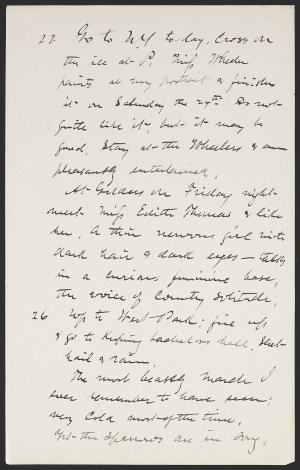 22 Go to N.Y. to-day, cross on
the ice at P. Miss Wheeler
paints at my portrait & finishes
it on Saturday the 24th. Do not
quite like it, but it may be
good. Stay at the Wheelers & am
pleasantly entertained.
At Gilders on Friday night
meet Miss Edith Thomas & like
her. A thin nervous girl with
dark hair & dark eyes — talks
in a curious feminine bass,
the voice of Country Solitude.
26 Up to West Park; fire up,
& go to keeping bachelors hall. Sleet
hail & rain.
The most beastly March I
ever remember to have seen;
very cold most of the time,
Yet the sparrows are in song,